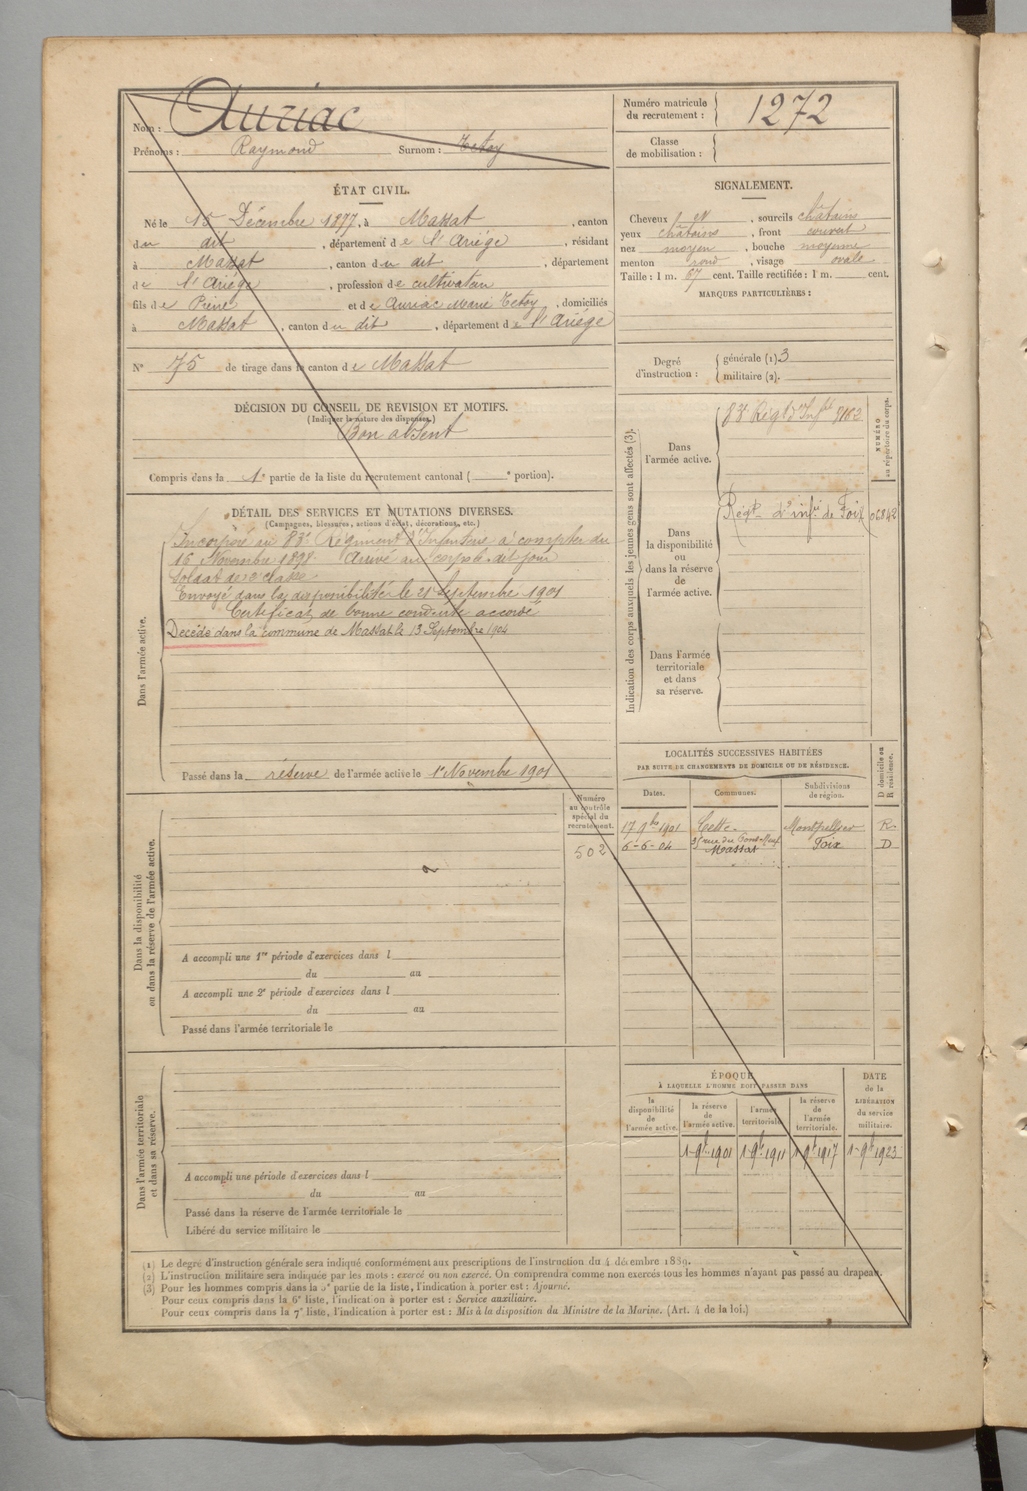 Nom : Auriac
Prénoms : Raymond Surnom : Tetoy
ÉTAT CIVIL.
Né le 15 Décembre 1877, à Massat, canton
du dit, département de l'Ariège, résidant
à Massat, canton du dit, département
de l'Ariège, profession de cultivateur
fils de Pierre et de Auriac Marie Tetoy, domiciliés
à Massat, canton du dit, département de l'Ariège
N° 75 de tirage dans le canton de Massat
DÉCISION DU CONSEIL DE REVISION ET MOTIFS.
(Indiquer la nature des dispenses.)
Bon absent
Compris dans la 1e partie de la liste du recrutement cantonal ( e portion).
DÉTAIL DES SERVICES ET MUTATIONS DIVERSES.
(Campagnes, blessures, actions d'éclat, décorations, etc.)
Dans l'armée active.
Incorporé au 83e Régiment d'Infanterie à compter du
16 Novembre 1898. Arrivé au corps le dit jour
Soldat de 2e classe
Envoyé dans la disponibilité le 21 Septembre 1901
Certificat de bonne conduite accordé
Décédé dans la commune de Massat le 13 Septembre 1904
Passé dans la réserve de l'armée active le 1er Novembre 1901
Numéro
au contrôle
spécial du
recrutement.
502
Dans la disponibilité
ou dans la réserve de l'armée active.
A accompli une 1re période d'exercices dans l
du au
A accompli une 2e période d'exercices dans l
du au
Passé dans l'armée territoriale le
Dans l'armée territoriale
et dans sa réserve.
A accompli une période d'exercices dans l
du au
Passé dans la réserve de l'armée territoriale le
Libéré du service militaire le
Numéro matricule
du recrutement : 1272
Classe
de mobilisation :
SIGNALEMENT.
Cheveux et, sourcils châtain
yeux châtains, front couvert
nez moyen, bouche moyenne
menton rond, visage ovale
Taille : 1 m. 67 cent. Taille rectifiée : 1 m. cent.
MARQUES PARTICULIÈRES :
Degré
d'instruction :
générale (1) 3
militaire (2).
Indication des corps auxquels les jeunes gens sont affectés (3).
NUMÉRO
au répertoire du corps.
Dans
l'armée active.
83 Régt d'Infie 5162
Dans
la disponibilité
ou
dans la réserve
de
l'armée active.
Régt d'infie de Foix 06842
Dans l'armée
territoriale
et dans
sa réserve.
LOCALITÉS SUCCESSIVES HABITÉES
PAR SUITE DE CHANGEMENTS DE DOMICILE OU DE RÉSIDENCE.
D domicile ou
R résidence.
Dates. Communes. Subdivisions
de région.
17 9bre 1901 Cette Montpellier R
35 rue du Pont-Neuf
6-6-04 Massat Foix D
ÉPOQUE
À LAQUELLE L'HOMME DOIT PASSER DANS
la
disponibilité
de
l'armée active.
la réserve
de
l'armée active.
l'armée
territoriale.
la réserve
de
l'armée
territoriale.
DATE
de la
LIBÉRATION
du service
militaire.
1 9bre 1901 1 9bre 1911 1 9bre 1917 1 9bre 1923
(1) Le degré d'instruction générale sera indiqué conformément aux prescriptions de l'instruction du 4 décembre 1889.
(2) L'instruction militaire sera indiquée par les mots : exercé ou non exercé. On comprendra comme non exercés tous les hommes n'ayant pas passé au drapeau.
(3) Pour les hommes compris dans la 5e partie de la liste, l'indication à porter est : Ajourné.
Pour ceux compris dans la 6e liste, l'indication à porter est : Service auxiliaire.
Pour ceux compris dans la 7e liste, l'indication à porter est : Mis à la disposition du Ministre de la Marine. (Art. 4 de la loi.)